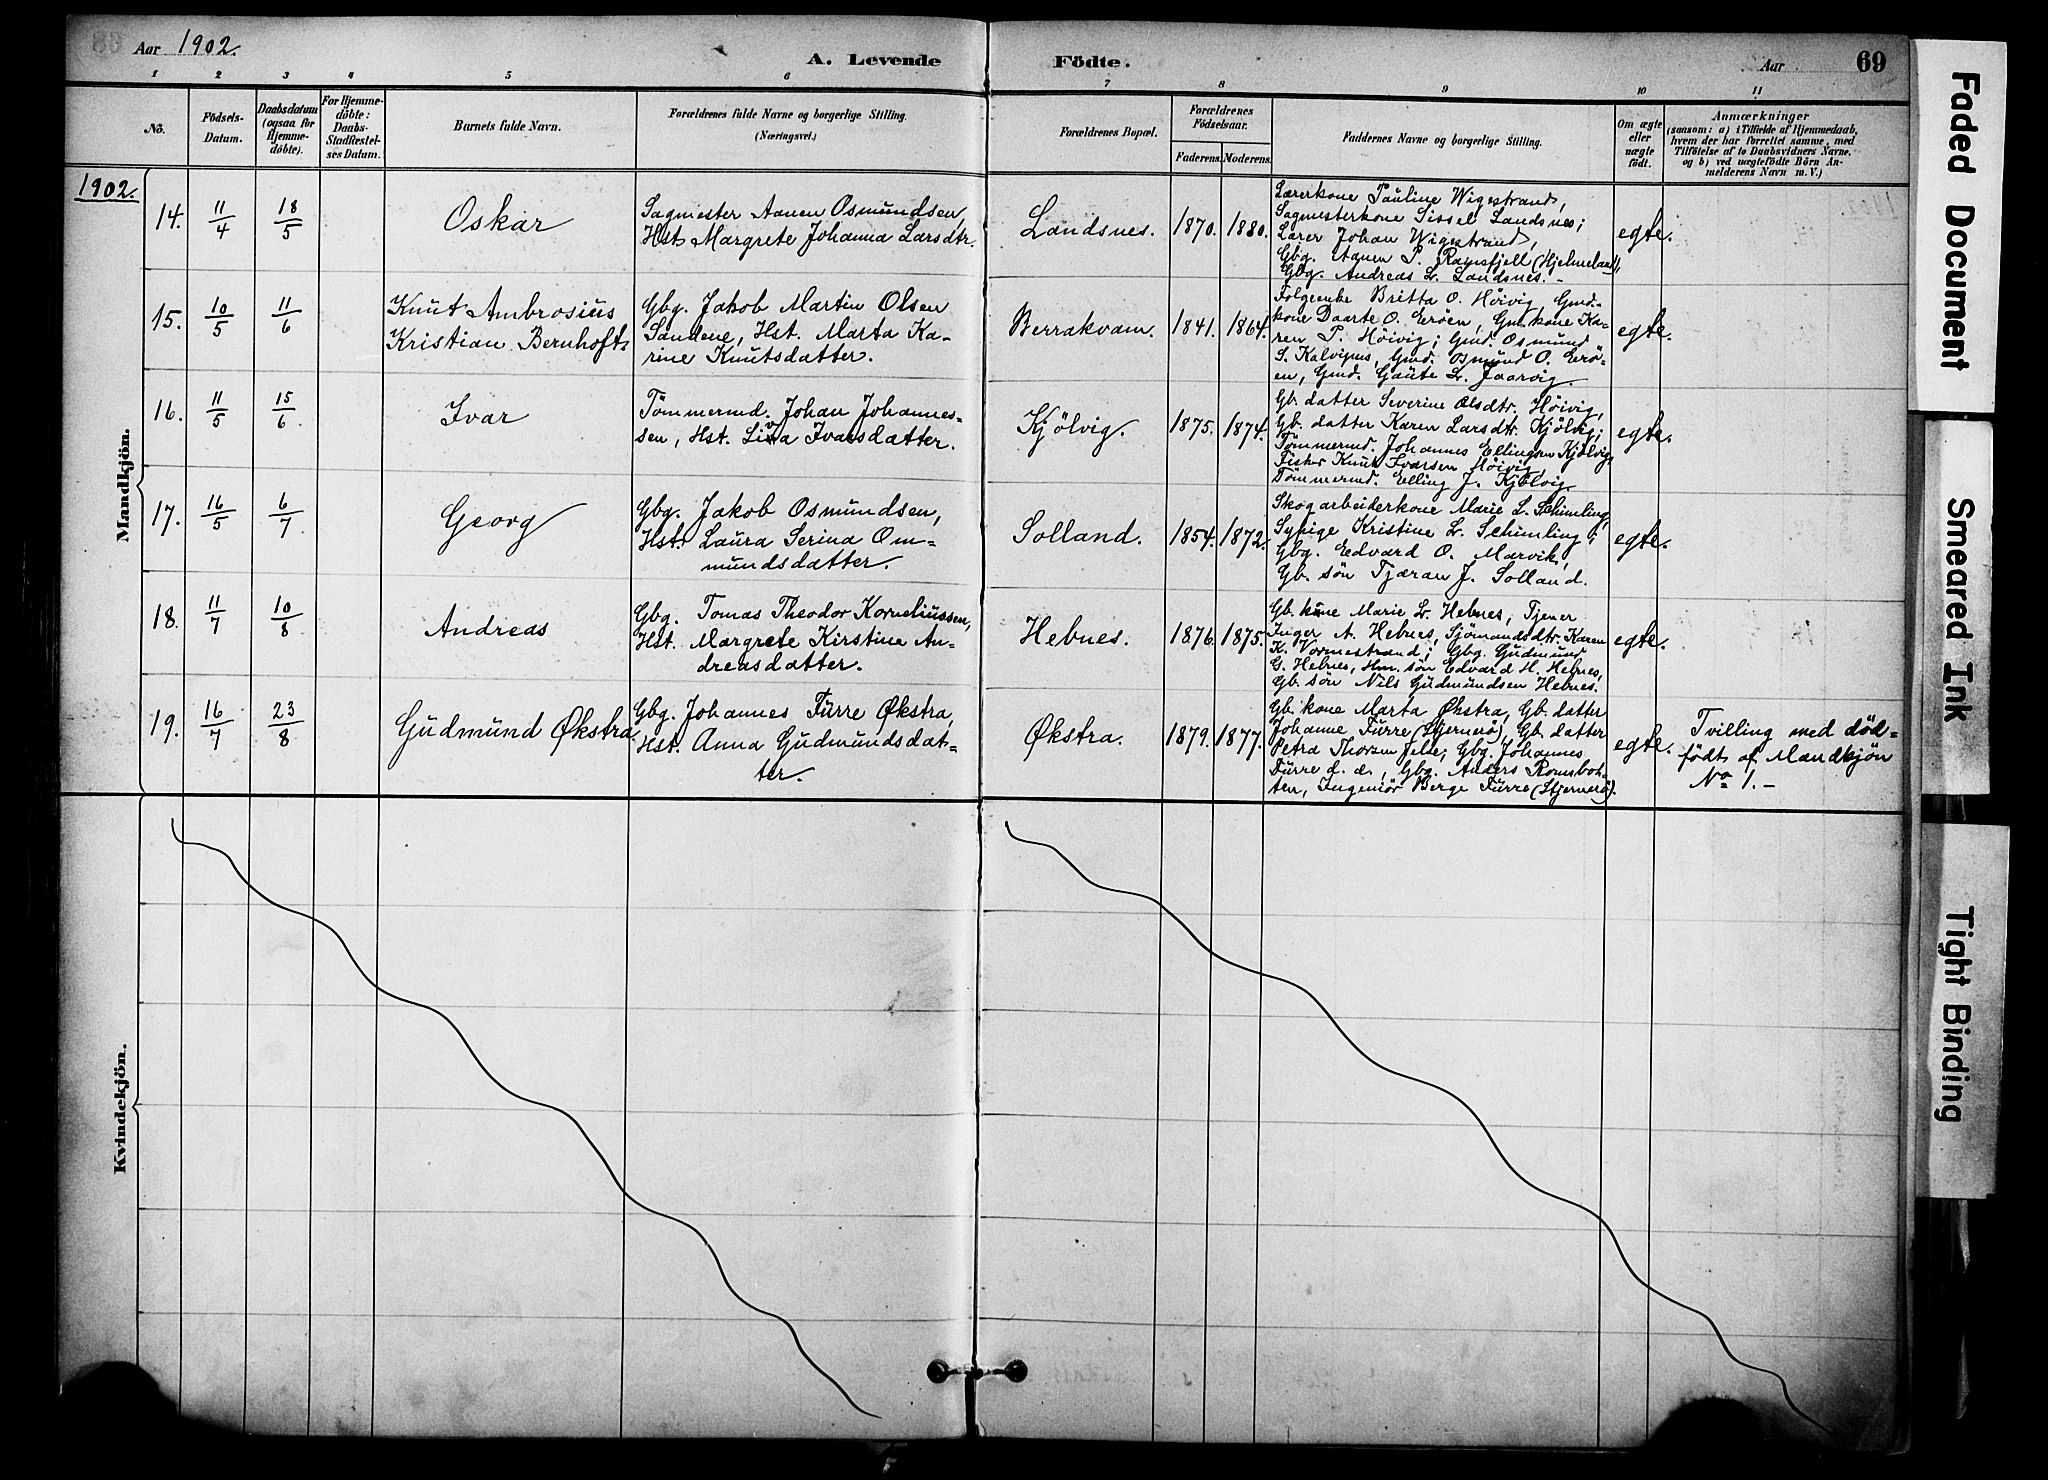 Aar 1902.
A. Levende Födte.
Aar
69
1 2 3 4 5 6 7 8 9 10 11
No.
Födsels-
Datum.
Daabsdatum
(ogsaa for
Hjemme-
döbte).
For Hjemme-
döbte:
Daabs-
Stadfæstel-
ses Datum.
Barnets fulde Navn.
Forældrenes fulde Navne og borgerlige Stilling.
(Næringsvei.)
Forældrenes Bopæl.
Forældrenes
Födselsaar.
Faderens. Moderens.
Faddernes Navne og borgerlige Stilling.
Om ægte
eller
uægte
födt.
Anmærkninger
(saasom: a) i Tilfælde af Hjemmedaab,
hvem der har forrettet samme, med
Tilföielse af to Daabsvidners Navne.
og b) ved uægtefödte Börn An-
melderens Navn m. V.)
1902.
Mandkjön.
14.
11/4
18/5
Oskar
Sagmester Aanen Osmundsen,
Hst. Margrete Johanna Larsdtr.
Landsnes.
1870.
1880.
Lærerkone Pauline Wigestrand,
Sagmesterkone Sissel Landsnes;
Lærer Johan Wigestrand,
Gbg. Aanen P. Ramsfjell (Hjelmeland),
Gbg. Andreas L. Landsnes. -
egte.
15.
10/5
11/6
Knut Ambrosius
Kristian Bernhoft
Gbg. Jakob Martin Olsen
Sandene, Hst. Marta Ka-
rine Knutsdatter.
Berrakvam.
1841.
1864.
Folgeenke Britta O. Höivig, Gmd.-
kone Daarte O. Eröen, Gm. kone Ka-
ren P. Höivig; Gmd. Osmund
S. Kalvignes, Gmd. Osmund O. Erö-
en, Gmd. Gaute L. Jaarvig.
egte.
16.
11/5
15/6
Ivar
Tömmermd. Johan Johannes-
sen, Hst. Lina Ivarsdatter.
Kjölvig.
1875.
1874.
Gb. datter Severine Olsdtr. Höivig,
Gb. datter Karen Larsdtr. Kjölvig;
Tömmermd. Johannes Ellingsen Kjölvig,
Fisker Knut Ivarsen Höivig,
Tömmermd. Elling J. Kjölvig.
egte.
17.
16/5
6/7
Georg
Gbg. Jakob Osmundsen,
Hst. Laura Serina Om-
mundsdatter.
Solland.
1854.
1872.
Skogarbeiderkone Marie L. Schimling,
Sypige Kristine L. Schimling;
Gbg. Edvard O. Marvik,
Gb. sön Tjæran J. Solland.
egte.
18.
11/7
10/8
Andreas
Gbg. Tomas Theodor Korneliussen,
Hst. Margrete Kirstine An-
dreasdatter.
Hebnes.
1876.
1875.
Gb. kone Marie L. Hebnes, Tjener
Inger A. Hebnes, Sjömandsdtr. Karen
K. Vormestrand; Gbg. Gudmund
G. Hebnes, Hm. sön Edvard H. Hebnes,
Gb. sön Nils Gudmundsen Hebnes.
egte.
19.
16/7
23/8
Gudmund Økstra
Gbg. Johannes Furre Økstra,
Hst. Anna Gudmundsdat-
ter.
Økstra.
1879.
1877.
Gb. kone Marta Økstra, Gb. datter
Johanne Furre (Stjernerö), Gb. datter
Petra Thorsen Jelse; Gbg. Johannes
Furre d. æ., Gbg. Anders Romsbot-
ten, Ingeniör Berge Furre (Stjernerö).
egte.
Tvilling med död-
födt af Mandkjön
No 1. -
Kvindekjön.
Faded Document
Smeared Ink
Tight Binding